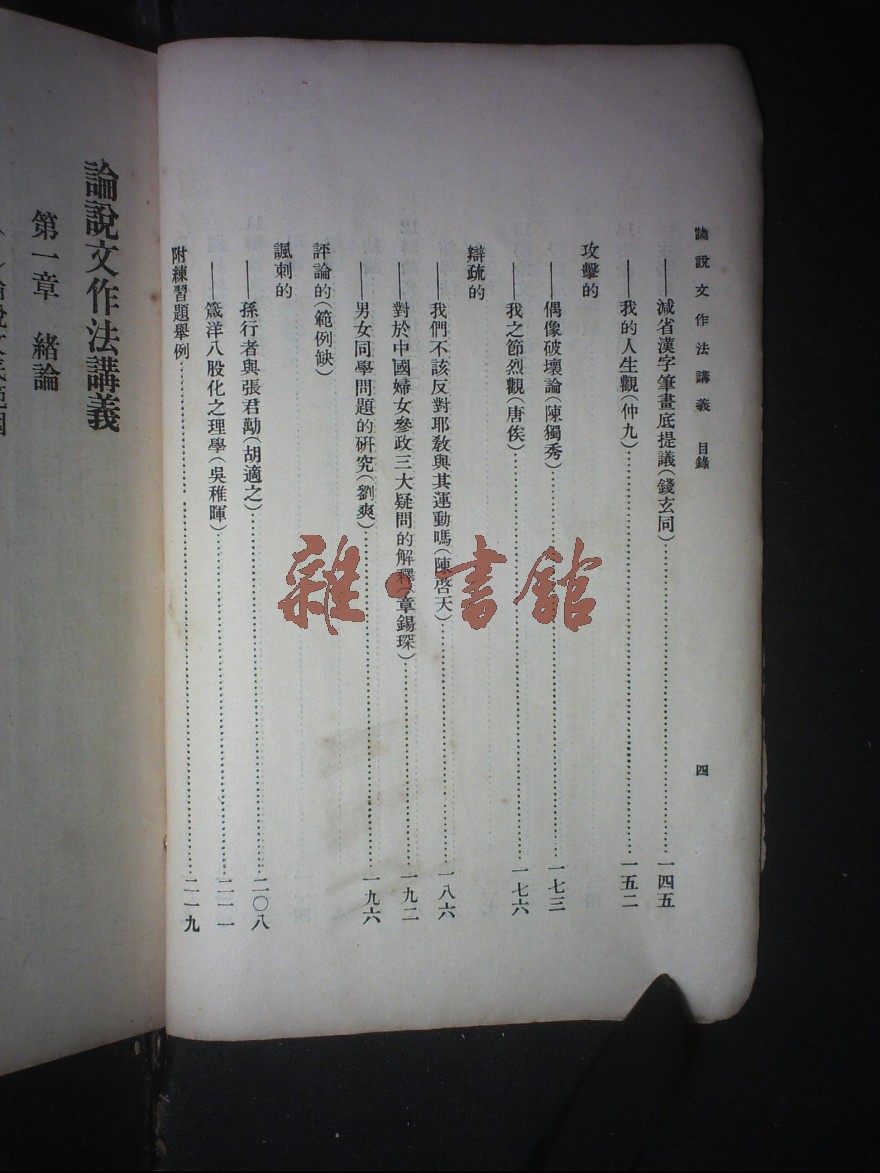 論說文作法講義 目錄 四
——減省漢字筆畫底提議(錢玄同)……一四五
——我的人生觀(仲九)……一五二
攻擊的
——偶像破壞論(陳獨秀)……一七三
——我之節烈觀(唐俟)……一七六
辯疏的
——我們不該反對耶教與其運動嗎(陳啓天)……一八六
——對於中國婦女參政三大疑問的解釋(章錫琛)……一九二
——男女同學問題的研究(劉爽)……一九六
評論的(範例缺)
諷刺的
——孫行者與張君勱(胡適之)……二〇八
——箴洋八股化之理學(吳稚暉)……二一一
附練習題舉例……二一九
雜·書館
論說文作法講義
第一章 緒論